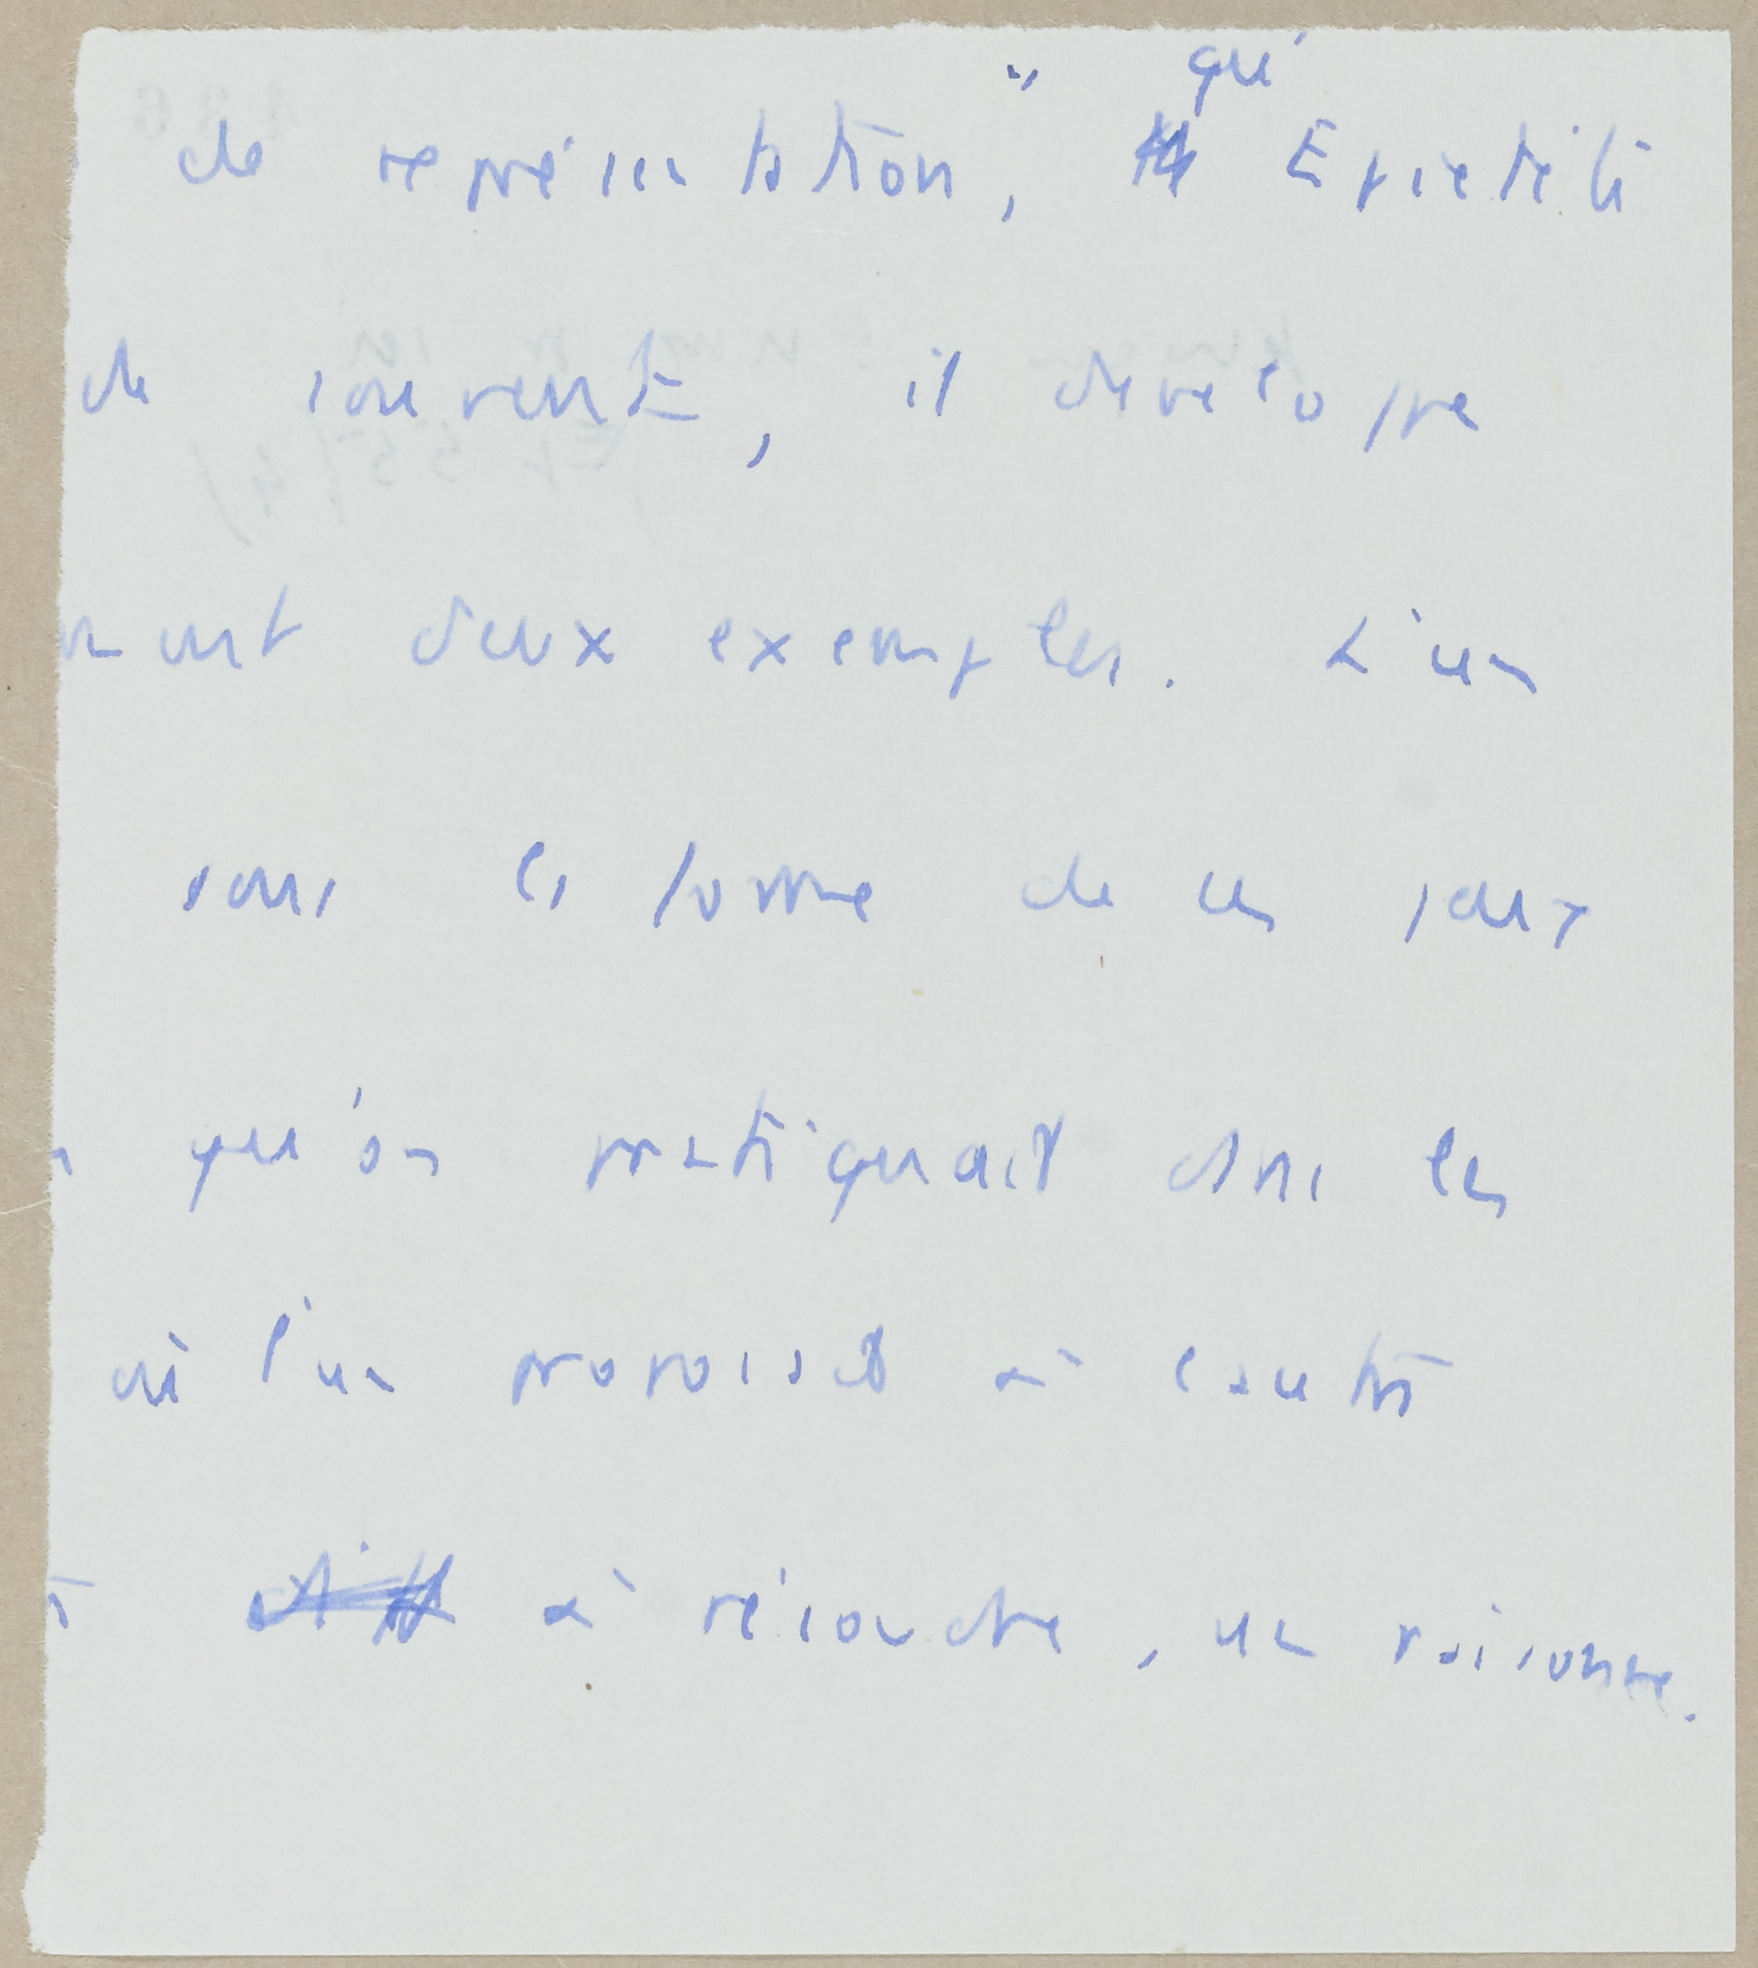 de représentation", qu'Epictète
de souvent, il développe
deux exemples. L'un
sous la forme de ces jeux
qu'on pratiquait dans les
où l'un proposait à l'autre
à résoudre, un raisonne.